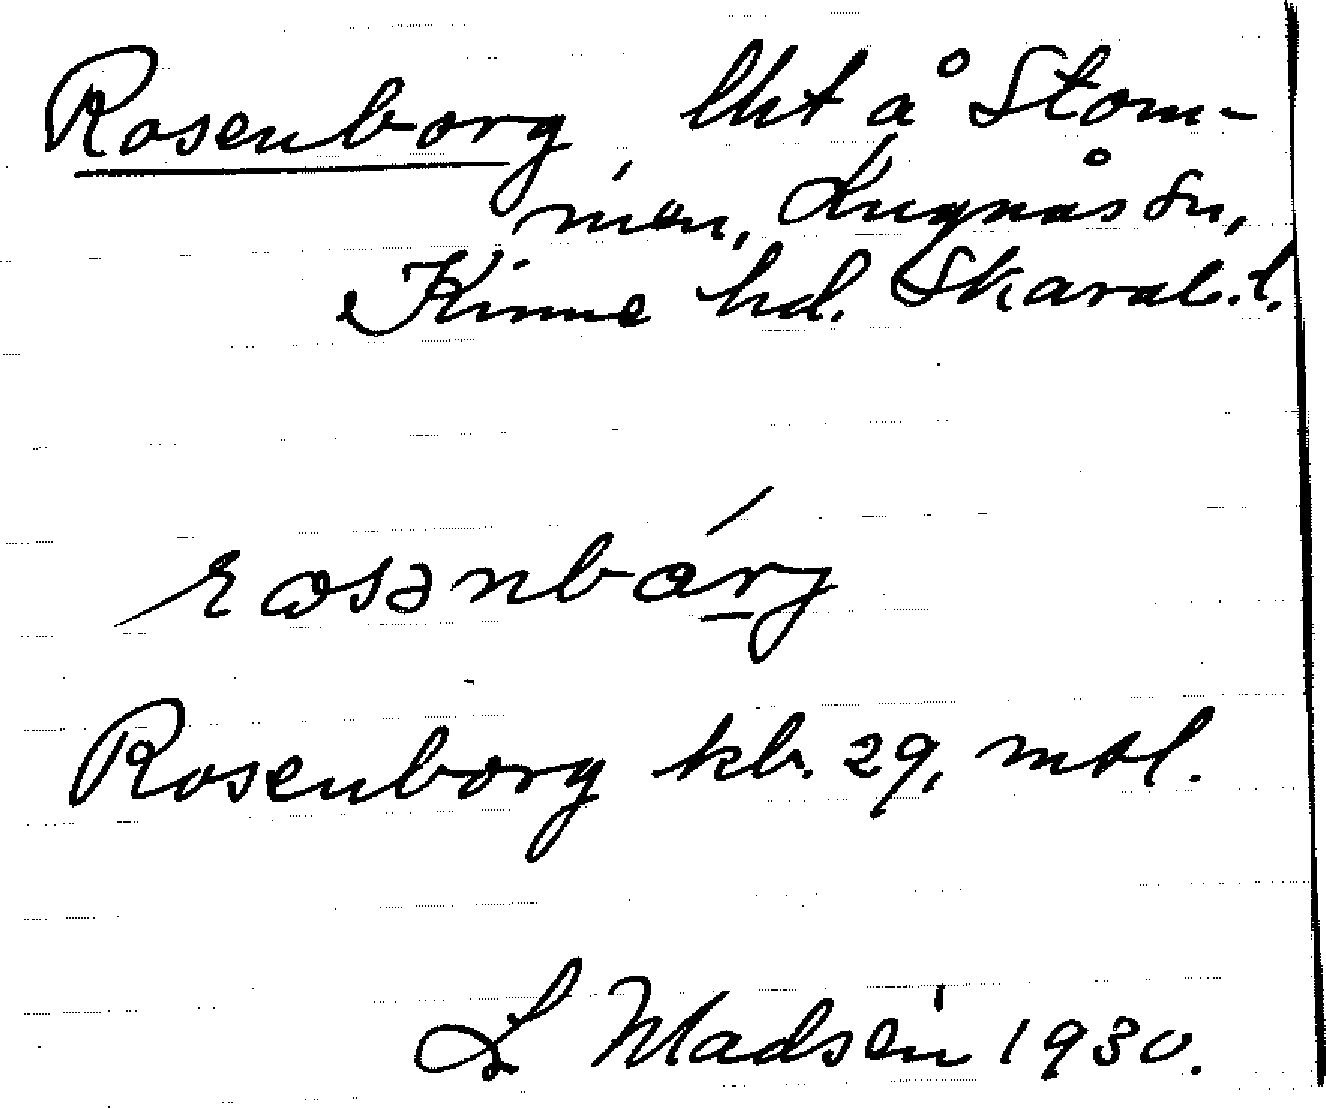 Rosenborg, lht å Stom-
men, Lugnås sn,
Kinne hd. Skarab. l.
rosənbárj
Rosenborg kb. 29, mtl.
L Madsén 1930.